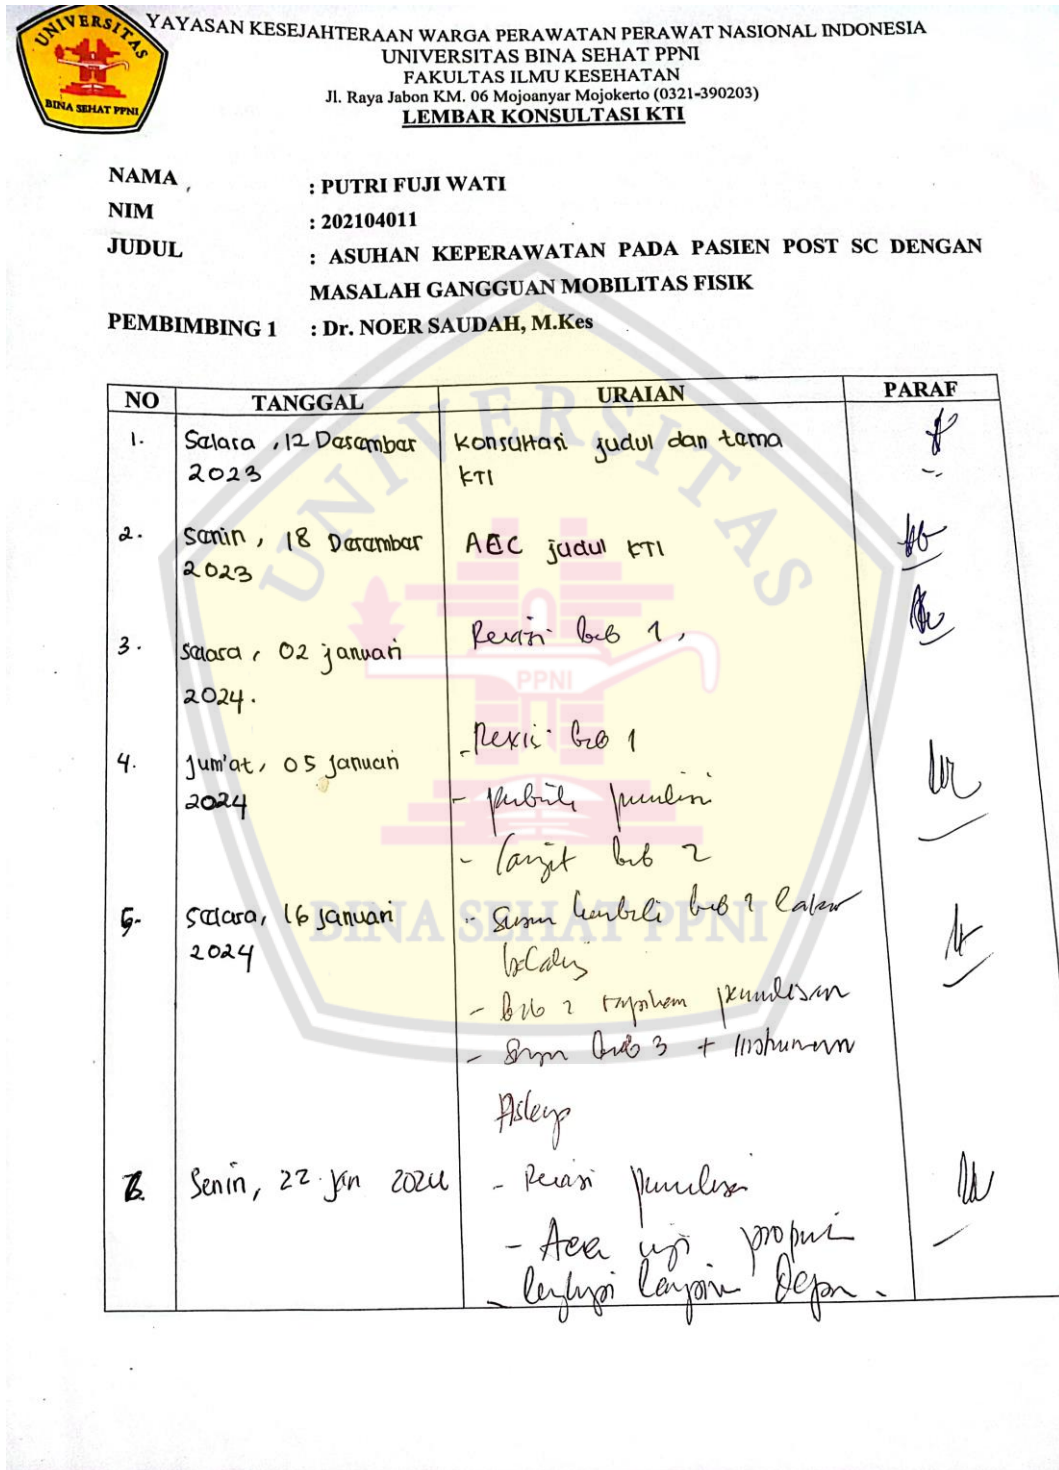 UNIVERSITAS
BINA SEHAT PPNI
YAYASAN KESEJAHTERAAN WARGA PERAWATAN PERAWAT NASIONAL INDONESIA
UNIVERSITAS BINA SEHAT PPNI
FAKULTAS ILMU KESEHATAN
Jl. Raya Jabon KM. 06 Mojoanyar Mojokerto (0321-390203)
LEMBAR KONSULTASI KTI
NAMA : PUTRI FUJI WATI
NIM : 202104011
JUDUL : ASUHAN KEPERAWATAN PADA PASIEN POST SC DENGAN
MASALAH GANGGUAN MOBILITAS FISIK
PEMBIMBING 1 : Dr. NOER SAUDAH, M.Kes
NO TANGGAL URAIAN PARAF
1. Selasa, 12 Desember Konsultasi judul dan tema
2023 KTI
2. Senin, 18 Desember ACC judul KTI
2023
3. Selasa, 02 januari Revisi bab 1
2024.
4. Jum'at, 05 Januari - Revisi bab 1
2024 -
- lanjut bab 2
5. Selasa, 16 Januari - Susun kembali bab 2
2024
- bab 2 penulisan
- Susun bab 3 + Instrumen
Askep
6. Senin, 22 Jan 2024 - Revisi penulisan
- Acc uji
- lengkapi
UNIVERSITAS
PPNI
BINA SEHAT PPNI